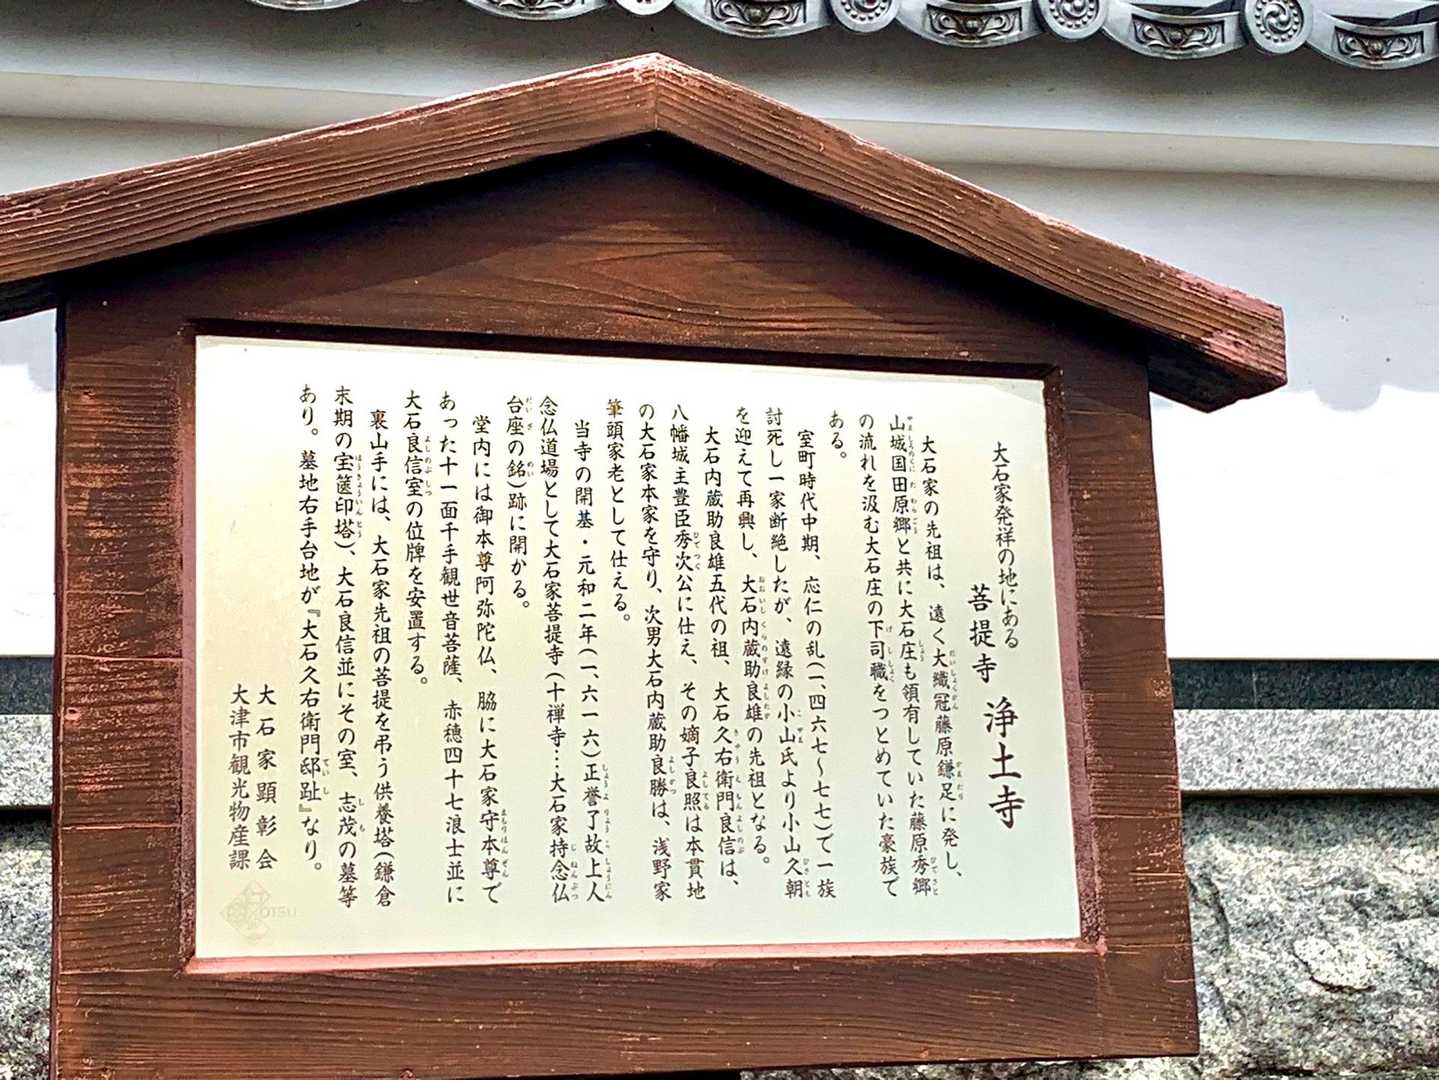 大石家発祥の地にある
菩提寺 浄土寺
大石家の先祖は、遠く大織冠藤原鎌足に発し、
山城国田原郷と共に大石庄も領有していた藤原秀郷
の流れを汲む大石庄の下司職をつとめていた豪族で
ある。
室町時代中期、応仁の乱(一、四六七〜七七)で一族
討死し一家断絶したが、遠縁の小山氏より小山久朝
を迎えて再興し、大石内蔵助良雄の先祖となる。
大石内蔵助良雄五代の祖、大石久右衛門良信は、
八幡城主豊臣秀次公に仕え、その嫡子良照は本貫地
の大石家本家を守り、次男大石内蔵助良勝は、浅野家
筆頭家老として仕える。
当寺の開基・元和二年(一、六一六)正誉了故上人
念仏道場として大石家菩提寺(十禅寺…大石家持念仏
台座の銘)跡に開かる。
堂内には御本尊阿弥陀仏、脇に大石家守本尊で
あった十一面千手観世音菩薩、赤穂四十七浪士並に
大石良信室の位牌を安置する。
裏山手には、大石家先祖の菩提を弔う供養塔(鎌倉
末期の宝篋印塔)、大石良信並にその室、志茂の墓等
あり。墓地右手台地が『大石久右衛門邸趾』なり。
大石家顕彰会
大津市観光物産課
OTSU